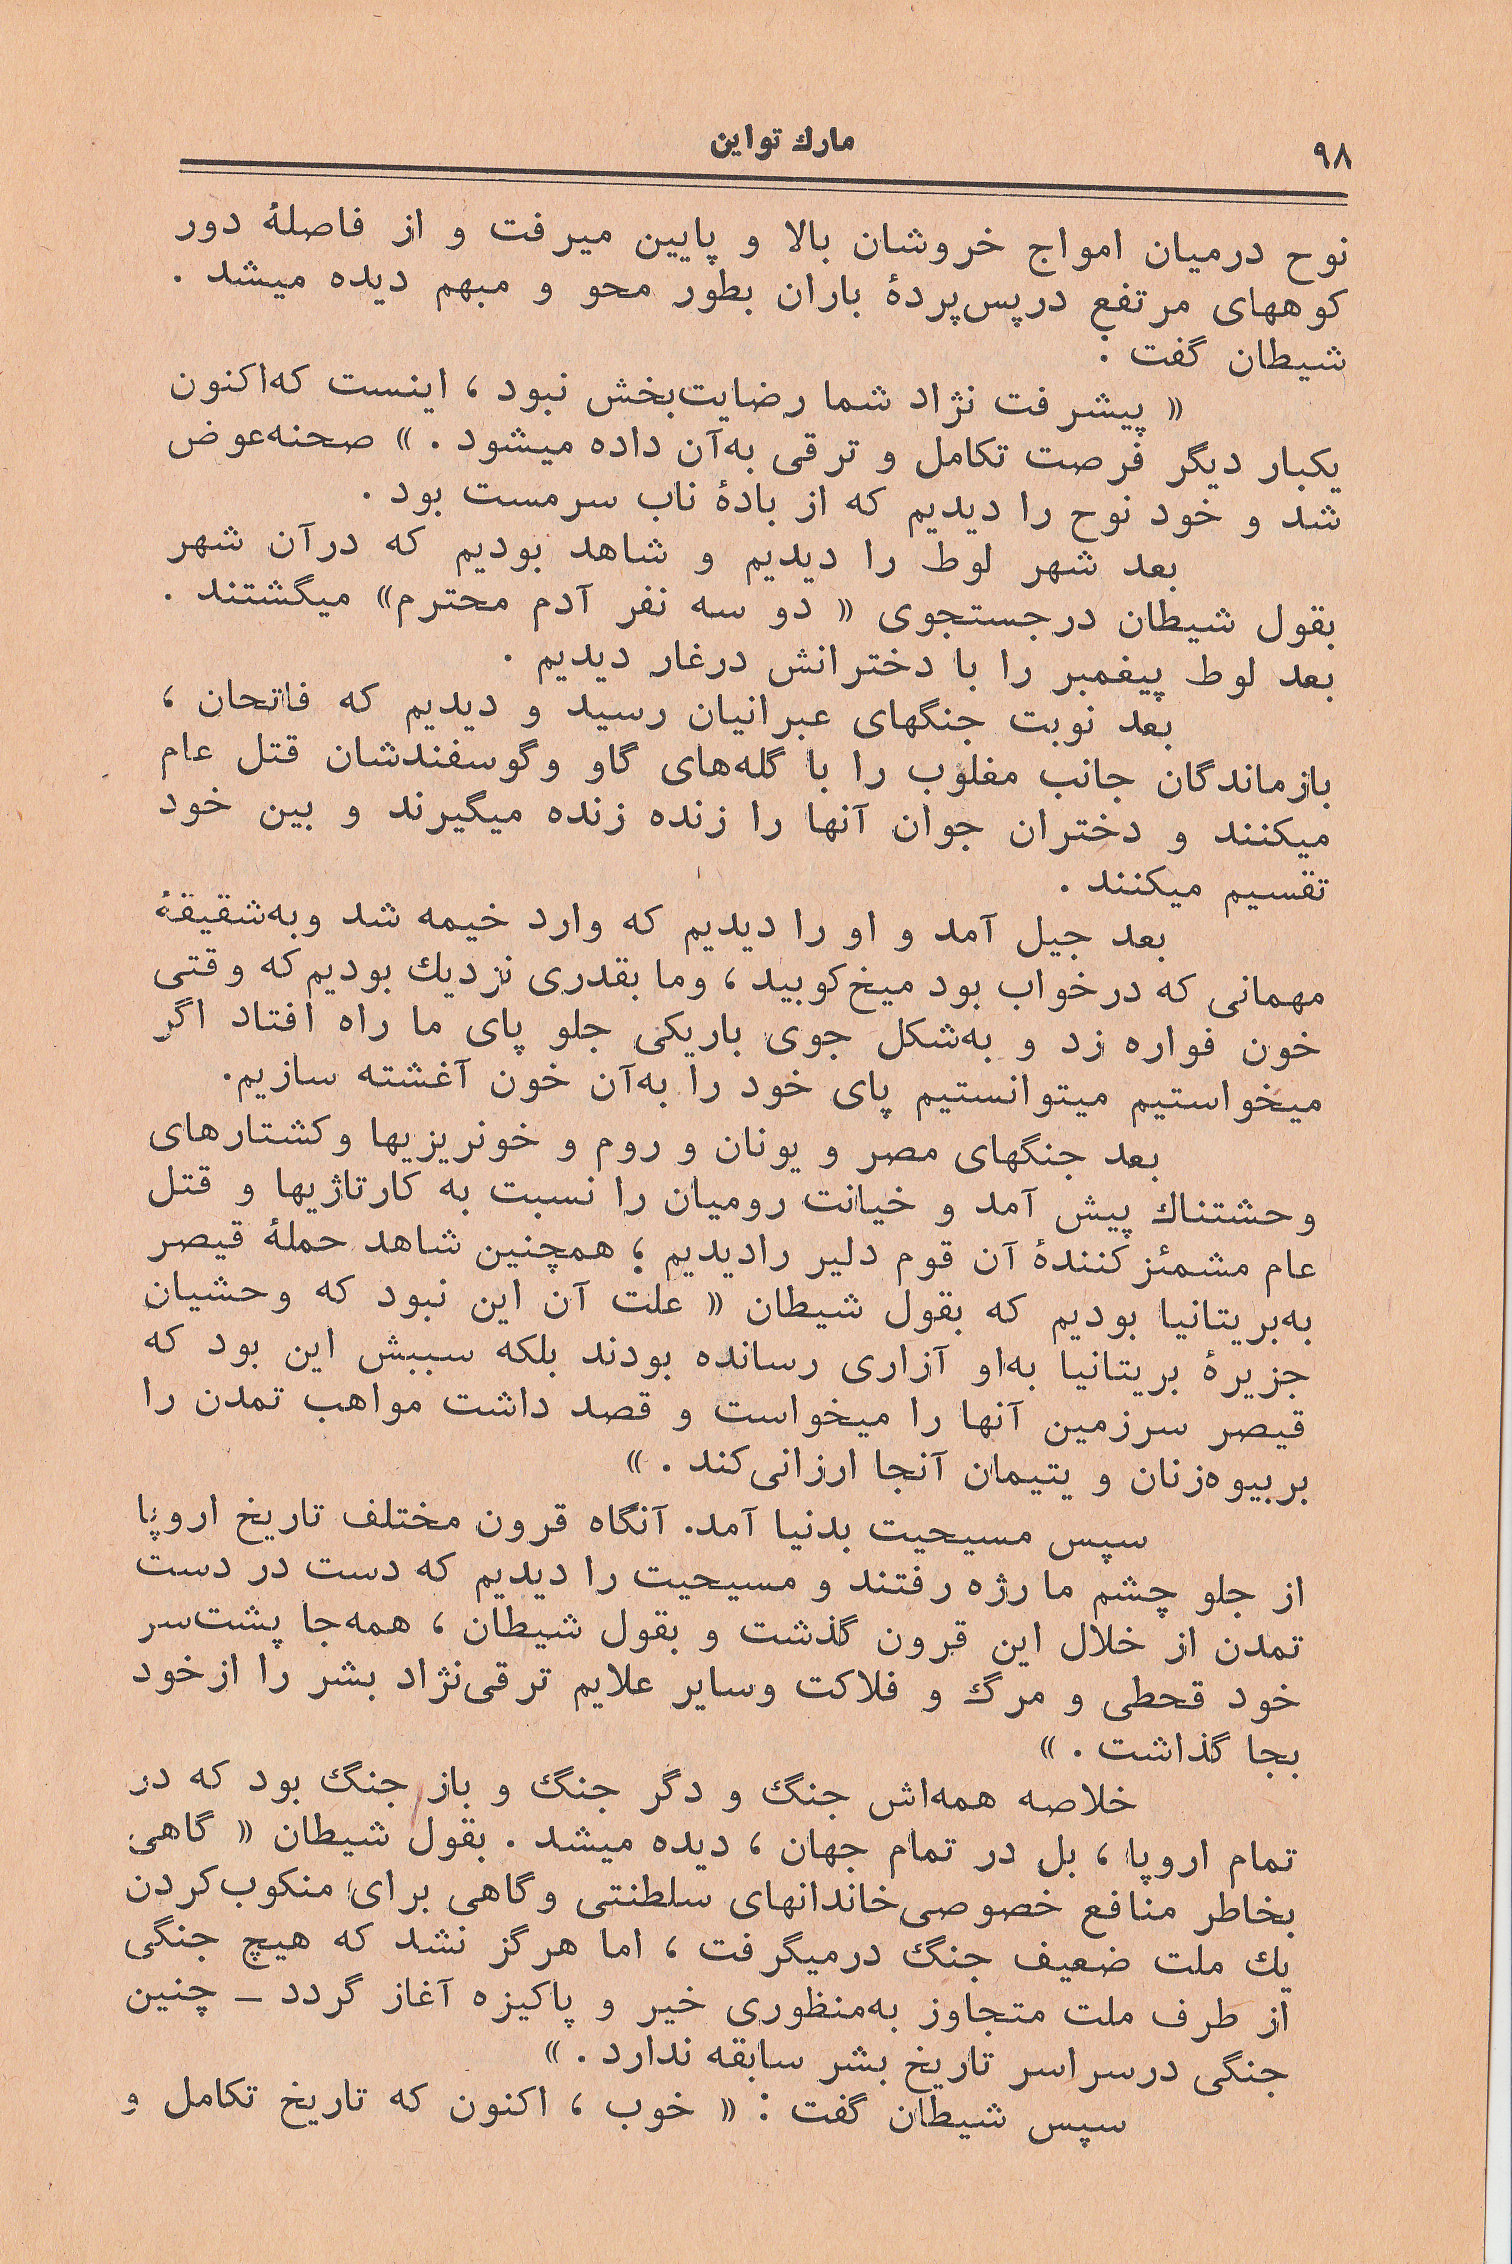 ۹۸
مارك تواین
نوح درمیان امواج خروشان بالا و پایین میرفت و از فاصلهٔ دور
کوههای مرتفع درپس‌پردهٔ باران بطور محو و مبهم دیده میشد .
شیطان گفت :
« پیشرفت نژاد شما رضایت‌بخش نبود ، اینست که‌اکنون
یکبار دیگر فرصت تکامل و ترقی به‌آن داده میشود . » صحنه‌عوض
شد و خود نوح را دیدیم که از بادهٔ ناب سرمست بود .
بعد شهر لوط را دیدیم و شاهد بودیم که درآن شهر
بقول شیطان درجستجوی « دو سه نفر آدم محترم» میگشتند .
بعد لوط پیغمبر را با دخترانش درغار دیدیم .
بعد نوبت جنگهای عبرانیان رسید و دیدیم که فاتحان ،
بازماندگان جانب مغلوب را با گله‌های گاو وگوسفندشان قتل عام
میکنند و دختران جوان آنها را زنده زنده میگیرند و بین خود
تقسیم میکنند .
بعد جیل آمد و او را دیدیم که وارد خیمه شد وبه‌شقیقهٔ
مهمانی که درخواب بود میخ‌کوبید ، وما بقدری نزدیك بودیم که وقتی
خون فواره زد و به‌شکل جوی باریکی جلو پای ما راه افتاد اگر
میخواستیم میتوانستیم پای خود را به‌آن خون آغشته سازیم.
بعد جنگهای مصر و یونان و روم و خونریزیها وکشتارهای
وحشتناك پیش آمد و خیانت رومیان را نسبت به کارتاژیها و قتل
عام مشمئزکنندهٔ آن قوم دلیر رادیدیم ؛ همچنین شاهد حملهٔ قیصر
به‌بریتانیا بودیم که بقول شیطان « علت آن این نبود که وحشیان
جزیرهٔ بریتانیا به‌او آزاری رسانده بودند بلکه سببش این بود که
قیصر سرزمین آنها را میخواست و قصد داشت مواهب تمدن را
بربیوه‌زنان و یتیمان آنجا ارزانی‌کند . »
سپس مسیحیت بدنیا آمد. آنگاه قرون مختلف تاریخ اروپا
از جلو چشم ما رژه رفتند و مسیحیت را دیدیم که دست در دست
تمدن از خلال این قرون گذشت و بقول شیطان ، همه‌جا پشت‌سر
خود قحطی و مرگ و فلاکت وسایر علایم ترقی‌نژاد بشر را ازخود
بجا گذاشت . »
خلاصه همه‌اش جنگ و دگر جنگ و باز جنگ بود که در
تمام اروپا ، بل در تمام جهان ، دیده میشد . بقول شیطان « گاهی
بخاطر منافع خصوصی‌خاندانهای سلطنتی وگاهی برای منکوب‌کردن
یك ملت ضعیف جنگ درمیگرفت ، اما هرگز نشد که هیچ جنگی
از طرف ملت متجاوز به‌منظوری خیر و پاکیزه آغاز گردد ـ چنین
جنگی درسراسر تاریخ بشر سابقه ندارد . »
سپس شیطان گفت : « خوب ، اکنون که تاریخ تکامل و